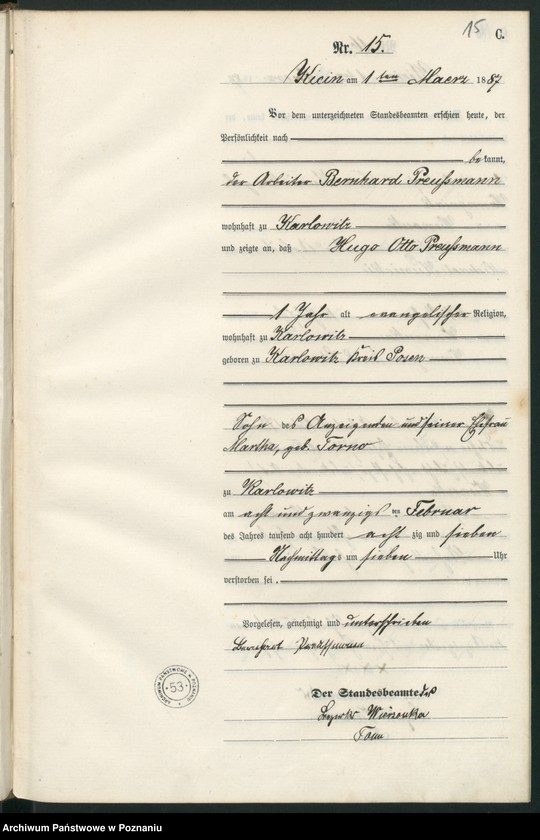 15
C.
Nr. 15.
Kicin am 1ten Maerz 1887
Vor dem unterzeichneten Standesbeamten erschien heute, der
Persönlichkeit nach
bekannt,
der Arbeiter Bernhard Preußmann
wohnhaft zu Karlowitz
und zeigte an, daß Hugo Otto Preußmann
1 Jahr alt evangelischer Religion,
wohnhaft zu Karlowitz
geboren zu Karlowitz Kreis Posen
Sohn des Anzeigenden und seiner Ehefrau
Martha, geb. Torno
zu Karlowitz
am acht und zwanzigs ten Februar
des Jahres tausend acht hundert acht zig und sieben
Nachmittags um sieben Uhr
verstorben sei.
Vorgelesen, genehmigt und unterschrieben
Bernhard Preußmann
Der Standesbeamte des
Bezirks Wierzonka
ARCHIWUM PAŃSTWOWE W POZNANIU
53
Archiwum Państwowe w Poznaniu